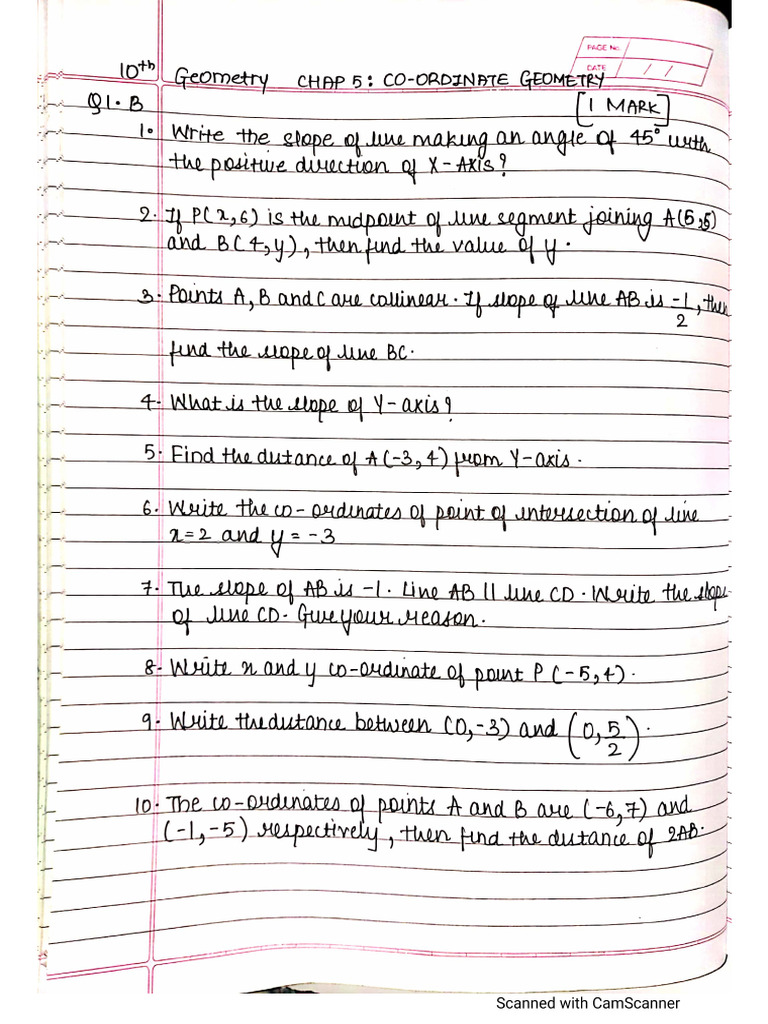 PAGE No.
DATE / /
10th Geometry CHAP 5: CO-ORDINATE GEOMETRY
Q1. B [1 MARK]
1. Write the slope of line making an angle of 45° with
the positive direction of X-Axis?
2. If P(x,6) is the midpoint of line segment joining A(5,5)
and B(4,y), then find the value of y.
3. Points A, B and C are collinear. If slope of line AB is -1/2, then
find the slope of line BC.
4. What is the slope of Y-axis?
5. Find the distance of A(-3,4) from Y-axis.
6. Write the co-ordinates of point of intersection of line
x=2 and y = -3
7. The slope of AB is -1. Line AB || line CD. Write the slope
of line CD. Give your reason.
8. Write x and y co-ordinate of point P(-5,4).
9. Write the distance between (0,-3) and (0, 5/2).
10. The co-ordinates of points A and B are (-6,7) and
(-1,-5) respectively, then find the distance of 2AB.
Scanned with CamScanner